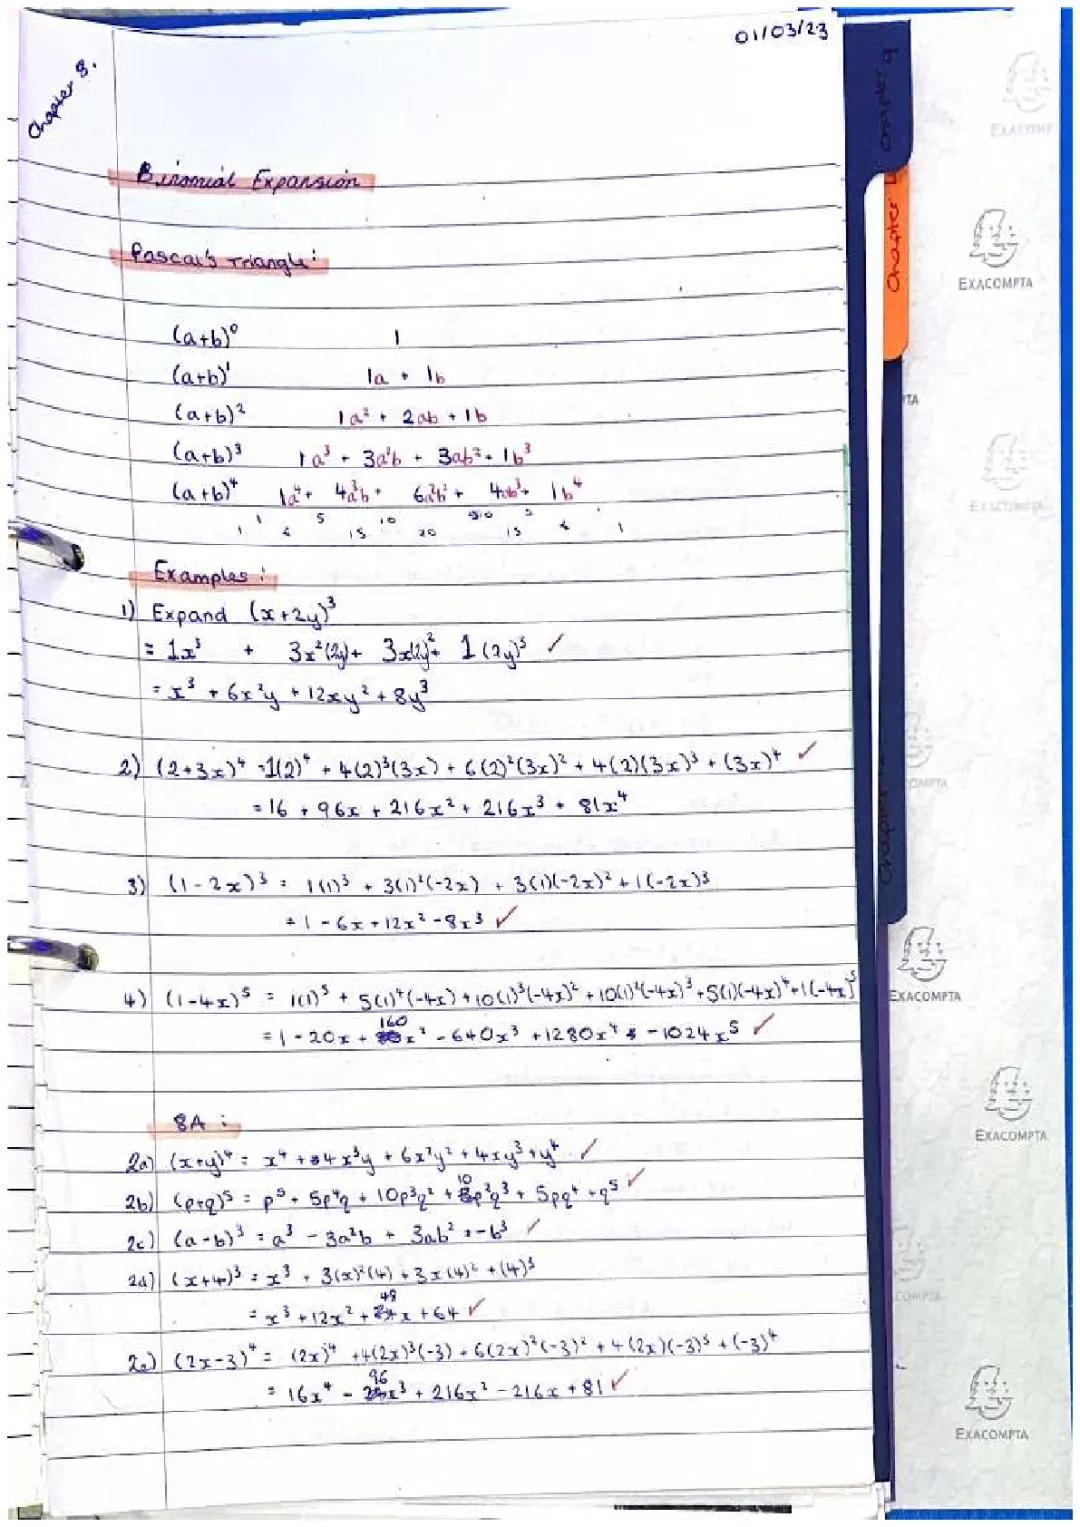 01/03/23
Chapter 8.
Binomial Expansion
Pascal's Triangle:
(a+b)⁰ 1
(a+b)¹ 1a + 1b
(a+b)² 1a² + 2ab + 1b
(a+b)³ 1a³ + 3a²b + 3ab² + 1b³
(a+b)⁴ 1a⁴ + 4a³b + 6a²b² + 4ab³ + 1b⁴
1 5 10
1 6 15 20 15 6 1
Examples:
1) Expand (x+2y)³
= 1x³ + 3x²(2y) + 3x(2y)² + 1(2y)³ ✓
= x³ + 6x²y + 12xy² + 8y³
2) (2+3x)⁴ = 1(2)⁴ + 4(2)³(3x) + 6(2)²(3x)² + 4(2)(3x)³ + (3x)⁴ ✓
= 16 + 96x + 216x² + 216x³ + 81x⁴
3) (1-2x)³ = 1(1)³ + 3(1)²(-2x) + 3(1)(-2x)² + 1(-2x)³
= 1 - 6x + 12x² - 8x³ ✓
4) (1-4x)⁵ = 1(1)⁵ + 5(1)⁴(-4x) + 10(1)³(-4x)² + 10(1)²(-4x)³ + 5(1)(-4x)⁴ + 1(-4x)⁵
= 1 - 20x + 160x² - 640x³ + 1280x⁴ - 1024x⁵ ✓
8A:
2a) (x+y)⁴ = x⁴ + 4x³y + 6x²y² + 4xy³ + y⁴ ✓
2b) (p+q)⁵ = p⁵ + 5p⁴q + 10p³q² + 10p²q³ + 5pq⁴ + q⁵ ✓
2c) (a-b)³ = a³ - 3a²b + 3ab² - b³ ✓
2d) (x+4)³ = x³ + 3(x)²(4) + 3x(4)² + (4)³
= x³ + 12x² + 48x + 64 ✓
2e) (2x-3)⁴ = (2x)⁴ + 4(2x)³(-3) + 6(2x)²(-3)² + 4(2x)(-3)³ + (-3)⁴
= 16x⁴ - 96x³ + 216x² - 216x + 81 ✓
Chapter 9
Chapter
Chapter
EXACOMPTA
EXACOMPTA
EXACOMPTA
EXACOMPTA
EXACOMPTA